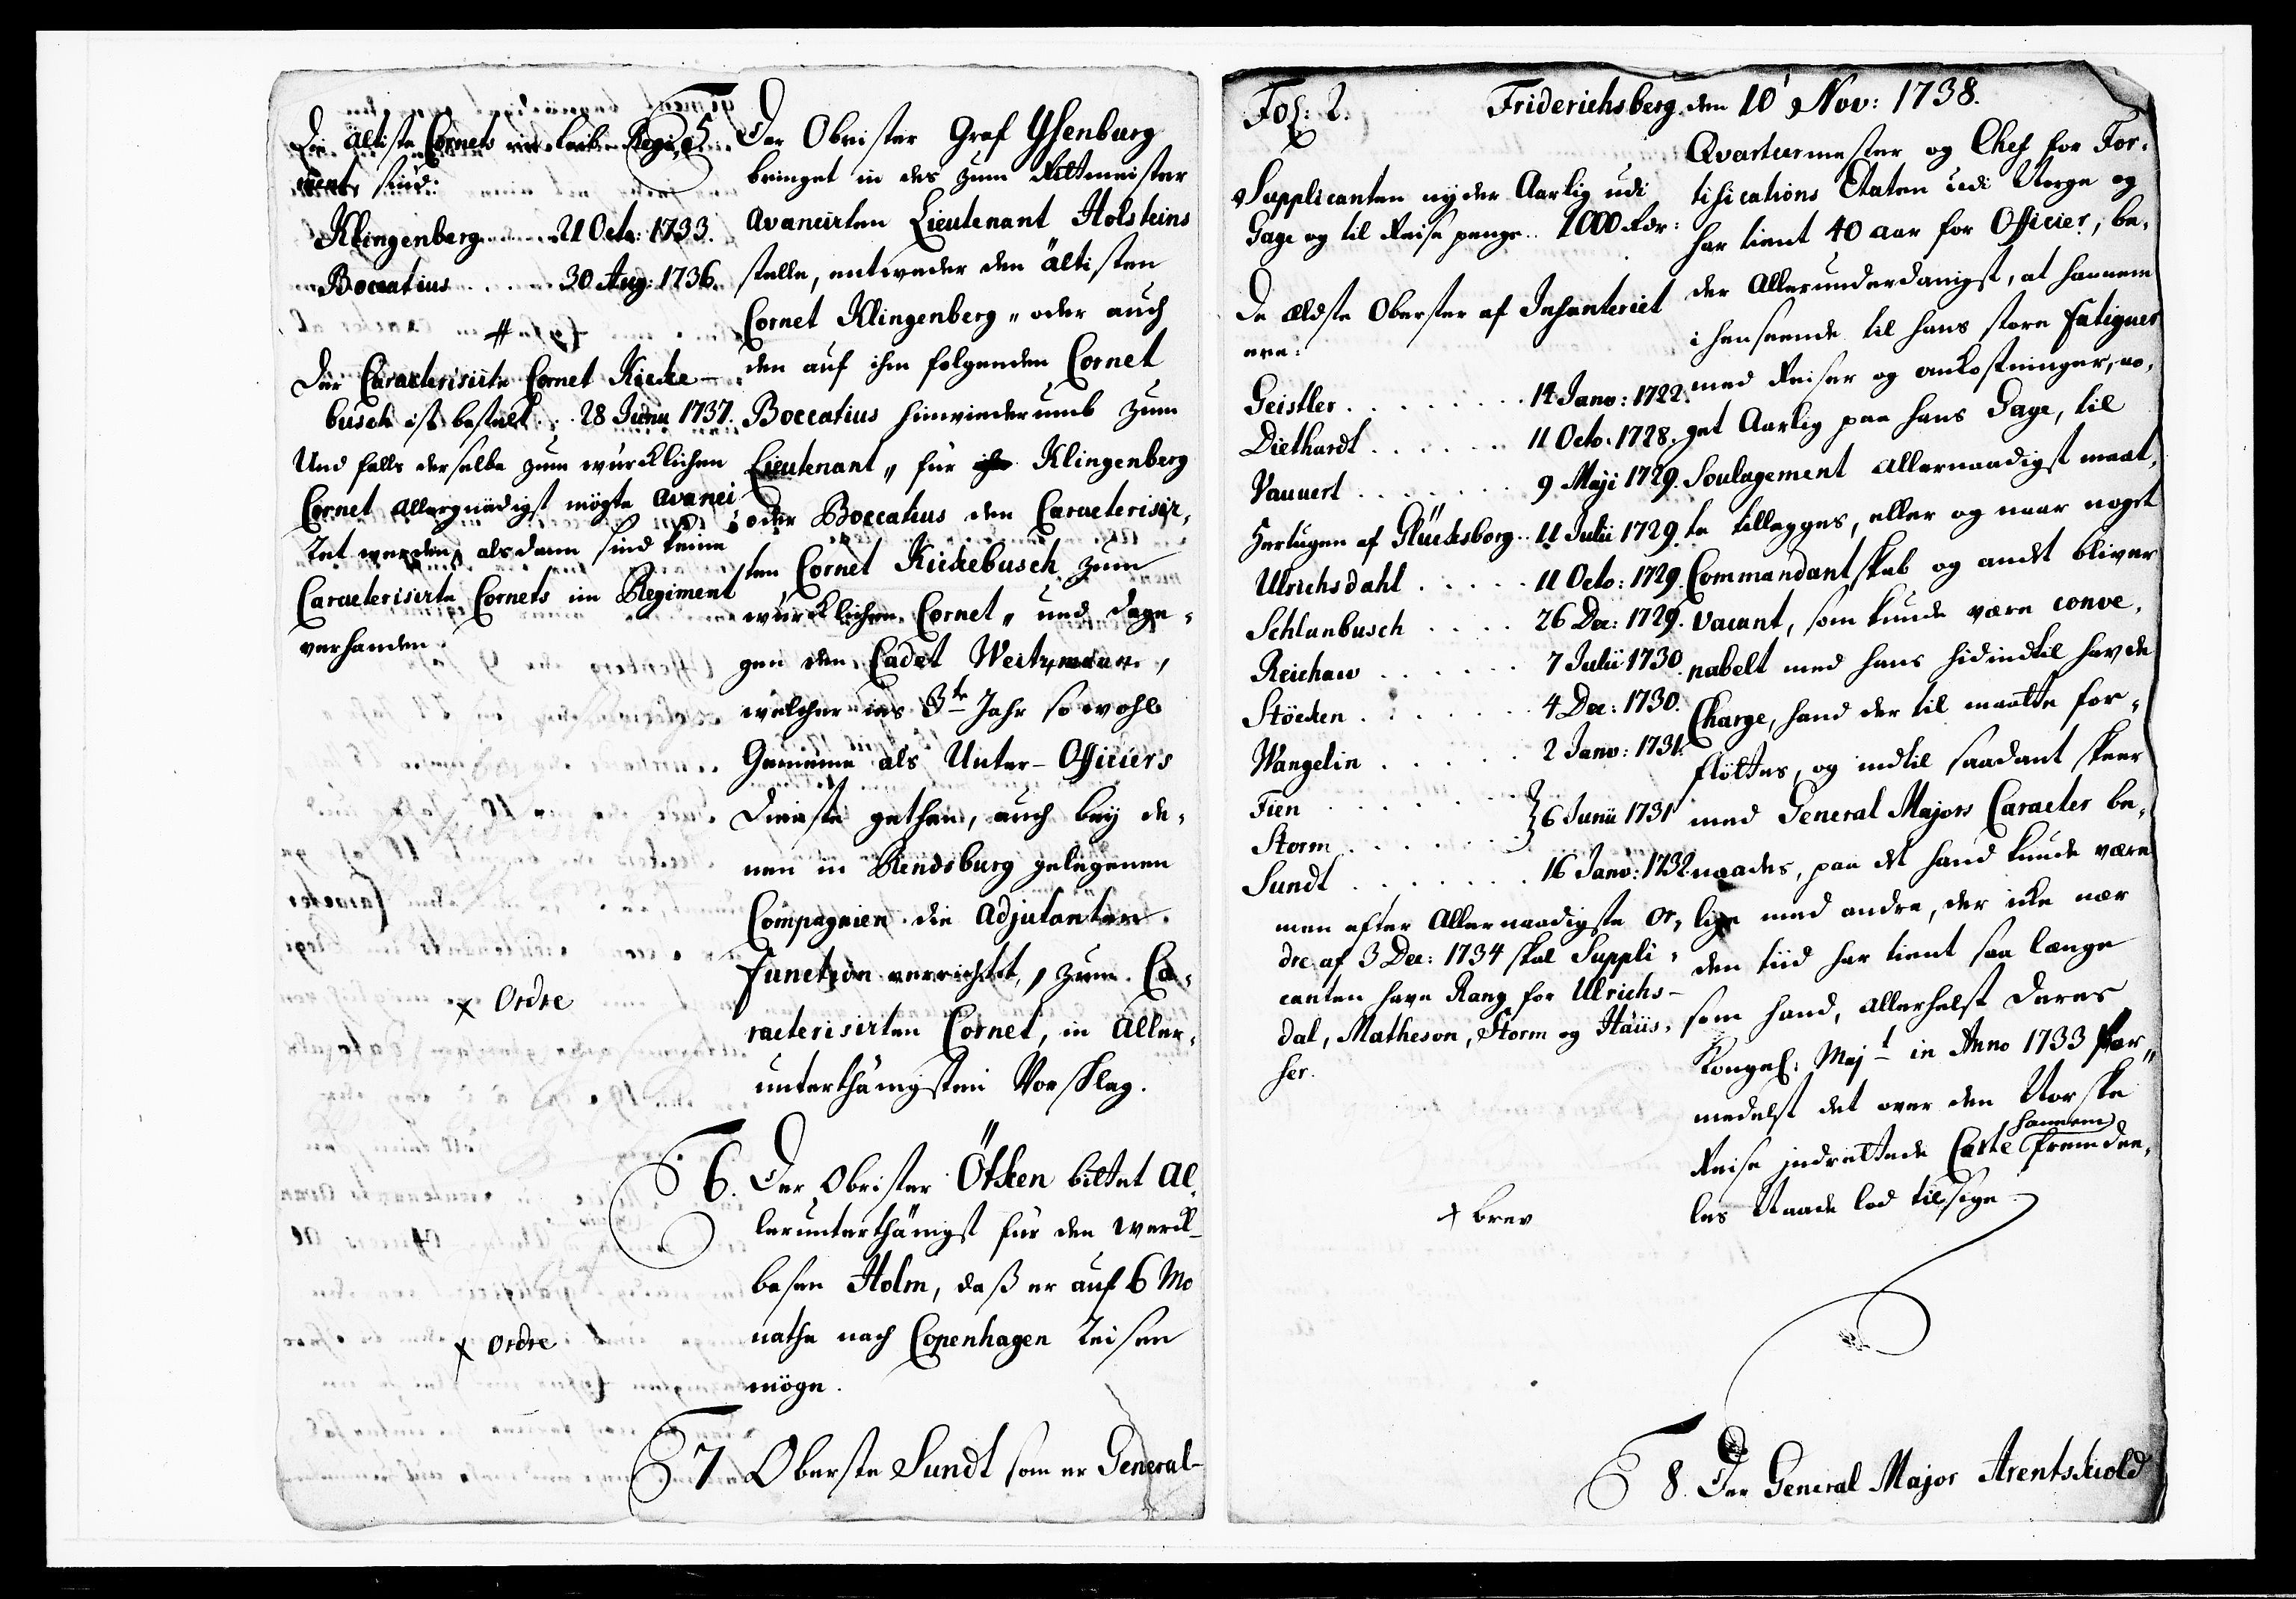 Die ältiste Cornets im Leib-Regi-
ment sind:
Klingenberg . . . . 21 Octo: 1733.
Boccatius . . . . 30 Aug: 1736.
#
Der Caracterisirte Cornet Kicke-
busch ist bestalt . . 28 Junii 1737.
Und falls derselbe zum würcklichen
Cornet Allergnädigst mögte avanci-
ret werden, alsdann sind keine
Caracterisirte Cornets im Regiment
verhanden.
x Ordre
x Ordre
5. Der Obrister Graf Ysenburg
bringet in des zum Rittmeister
avancirten Lieutenant Holsteins
stelle, entweder den ältisten
Cornet Klingenberg „ oder auch
den auf ihm folgenden Cornet
Boccatius hinwiederumb zum
Lieutenant „ für Klingenberg
oder Boccatius den Caracterisir-
ten Cornet Kickebusch zum
würcklichen Cornet „ und dage-
gen den Cadet Weitzmann,
welcher ins 3te Jahr so wohl
Gemeine als Unter-Officiers
Dienste gethan, auch bey de-
nen in Rendsburg gelegenen
Compagnien die Adjutanten
Function verrichtet, zum Ca-
racterisirten Cornet, in Aller-
unterthänigsten Vorschlag.
6. Der Obrister Ötken bittet Al-
lerunterthänigst für den Werck-
basen Holm, daß er auf 6 Mo
nathe nach Copenhagen reisen
möge.
7 Oberste Sundt som er General-
Fol: 2.
Friderichsberg den 10' Nov: 1738.
Supplicanten nyder Aarlig udi
Gage og til Reise penge .. 1000 Rdr:
De Ældste Oberster af Infanteriet
ere:
Geistler . . . . 14 Janv: 1722.
Diethardt . . . . 11 Octo: 1728.
Vauvert . . . . 9 Maji 1729.
Hertugen af Glücksborg .. 11 Julii 1729.
Ulrichsdahl . . . . 11 Octo: 1729.
Schlanbusch . . . . 26 Dec: 1729.
Reichaw . . . . 7 Julii 1730.
Stöcken . . . . 4 Dec: 1730.
Wangelin . . . . 2 Janv: 1731.
Fien . . . .
Storm . . . . } 6 Junii 1731
Sundt . . . . 16 Janv: 1732.
men efter Allernaadigste Or-
dre af 3 Dec: 1734 skal Suppli-
canten have Rang for Ulrichs-
dal, Matheson, Storm og Häüs-
ser.
x brev
Qvarteermester og Chef for For-
tifications Etaten udi Norge og
har tient 40 aar for Officier, be-
der Allerunderdanigst, at hannem
i henseende til hans store fatigues
med Reiser og omkostninger, no-
get Aarlig paa hans Gage, til
Soulagement Allernaadigst maat-
te tillegges, eller og naar noget
Commandantskab og andet bliver
vacant, som kunde være conve-
nabelt med hans hidindtil havde
Charge, hand der til maatte for-
flöttes, og indtil saadant skeer
med General Majors Caracter be-
naades, paa det hand kunde være
lige med andre, der icke nær
den tiid har tient saa længe
som hand, allerhelst Deres
Kongel: Majt in Anno 1733 for-
medelst det over den Norske
Reise indrettede Carte hannem fremdee-
les Naade lod tilsige.
8. Der General Major Arentskiold